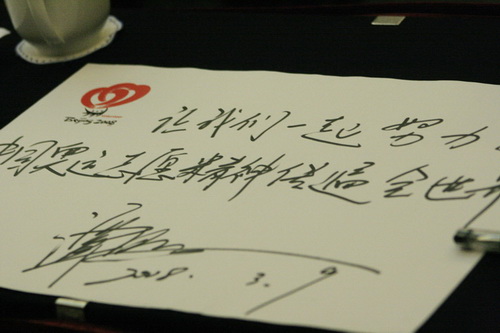 Beijing 2008
让我们一起努力
中国奥运志愿精神传遍全世
2008. 3. 9